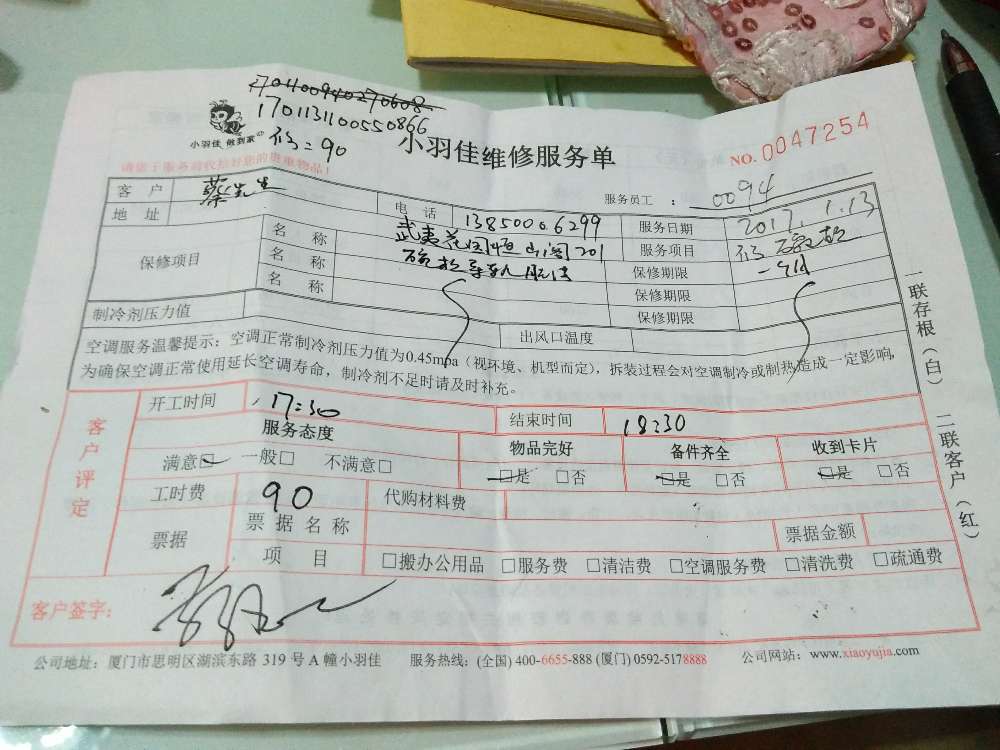 1701131100550866
小羽佳 做到家
修=90
小羽佳维修服务单
NO.0047254
请您于服务前收拾好您的贵重物品！
服务员工 ： 0094
客 户 蔡先生 电 话 13850006299 服务日期 2017.1.13
地 址 武夷花园恒山阁201 服务项目 修
保修项目 名 称 保修期限 一个月
名 称 保修期限
名 称 保修期限
制冷剂压力值 出风口温度
空调服务温馨提示：空调正常制冷剂压力值为0.45mpa（视环境、机型而定），拆装过程会对空调制冷或制热造成一定影响，
为确保空调正常使用延长空调寿命，制冷剂不足时请及时补充。
一联存根（白） 二联客户（红）
客户评定
开工时间 17:30 结束时间 18:30
服务态度 物品完好 备件齐全 收到卡片
满意□ 一般□ 不满意□ □是 □否 □是 □否 □是 □否
工时费 90 代购材料费
票据 票据名称 票据金额
项 目 □搬办公用品 □服务费 □清洁费 □空调服务费 □清洗费 □疏通费
客户签字：
公司地址：厦门市思明区湖滨东路 319 号 A 幢小羽佳 服务热线：(全国) 400-6655-888 (厦门) 0592-5178888 公司网站：www.xiaoyujia.com